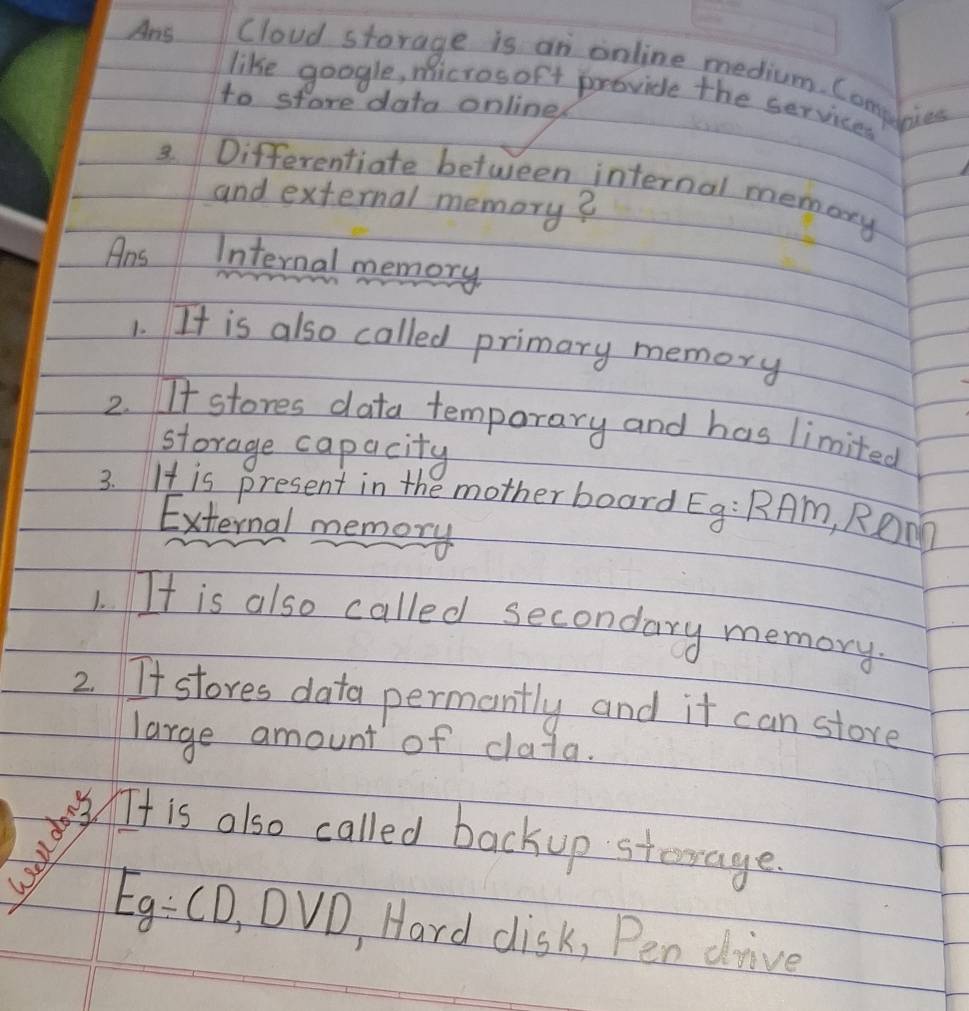 Ans Cloud storage is an online medium. Companies
like google, microsoft provide the services
to store data online.
3. Differentiate between internal memory
and external memory?
Ans Internal memory
1. It is also called primary memory
2. It stores data temporary and has limited
storage capacity
3. It is present in the motherboard Eg: RAM, ROM
External memory
1. It is also called secondary memory.
2. It stores data permantly and it can store
large amount of data.
3. It is also called backup storage.
Eg:- CD, DVD, Hard disk, Pen drive
Well done